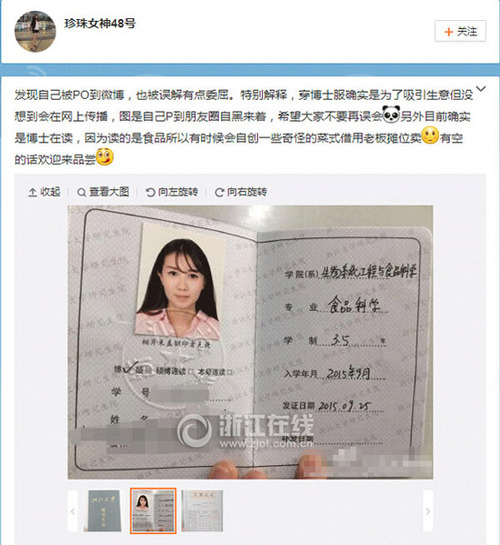 珍珠女神48号
+ 关注
发现自己被PO到微博，也被误解有点委屈。特别解释，穿博士服确实是为了吸引生意但没
想到会在网上传播，图是自己P到朋友圈自黑来着，希望大家不要再误会 另外目前确实
是博士在读，因为读的是食品所以有时候会自创一些奇怪的菜式借用老板摊位卖 有空
的话欢迎来品尝
收起 查看大图 向左旋转 向右旋转
相片未盖钢印者无效
博 硕 硕博连读 本硕连读
学 号
姓 名
学院(系) 生物系统工程与食品科学
专 业 食品科学
学 制 3.5 年
入学年月 2015年9月
发证日期 2015.09.25
补发日期
浙江在线
www.zjol.com.cn